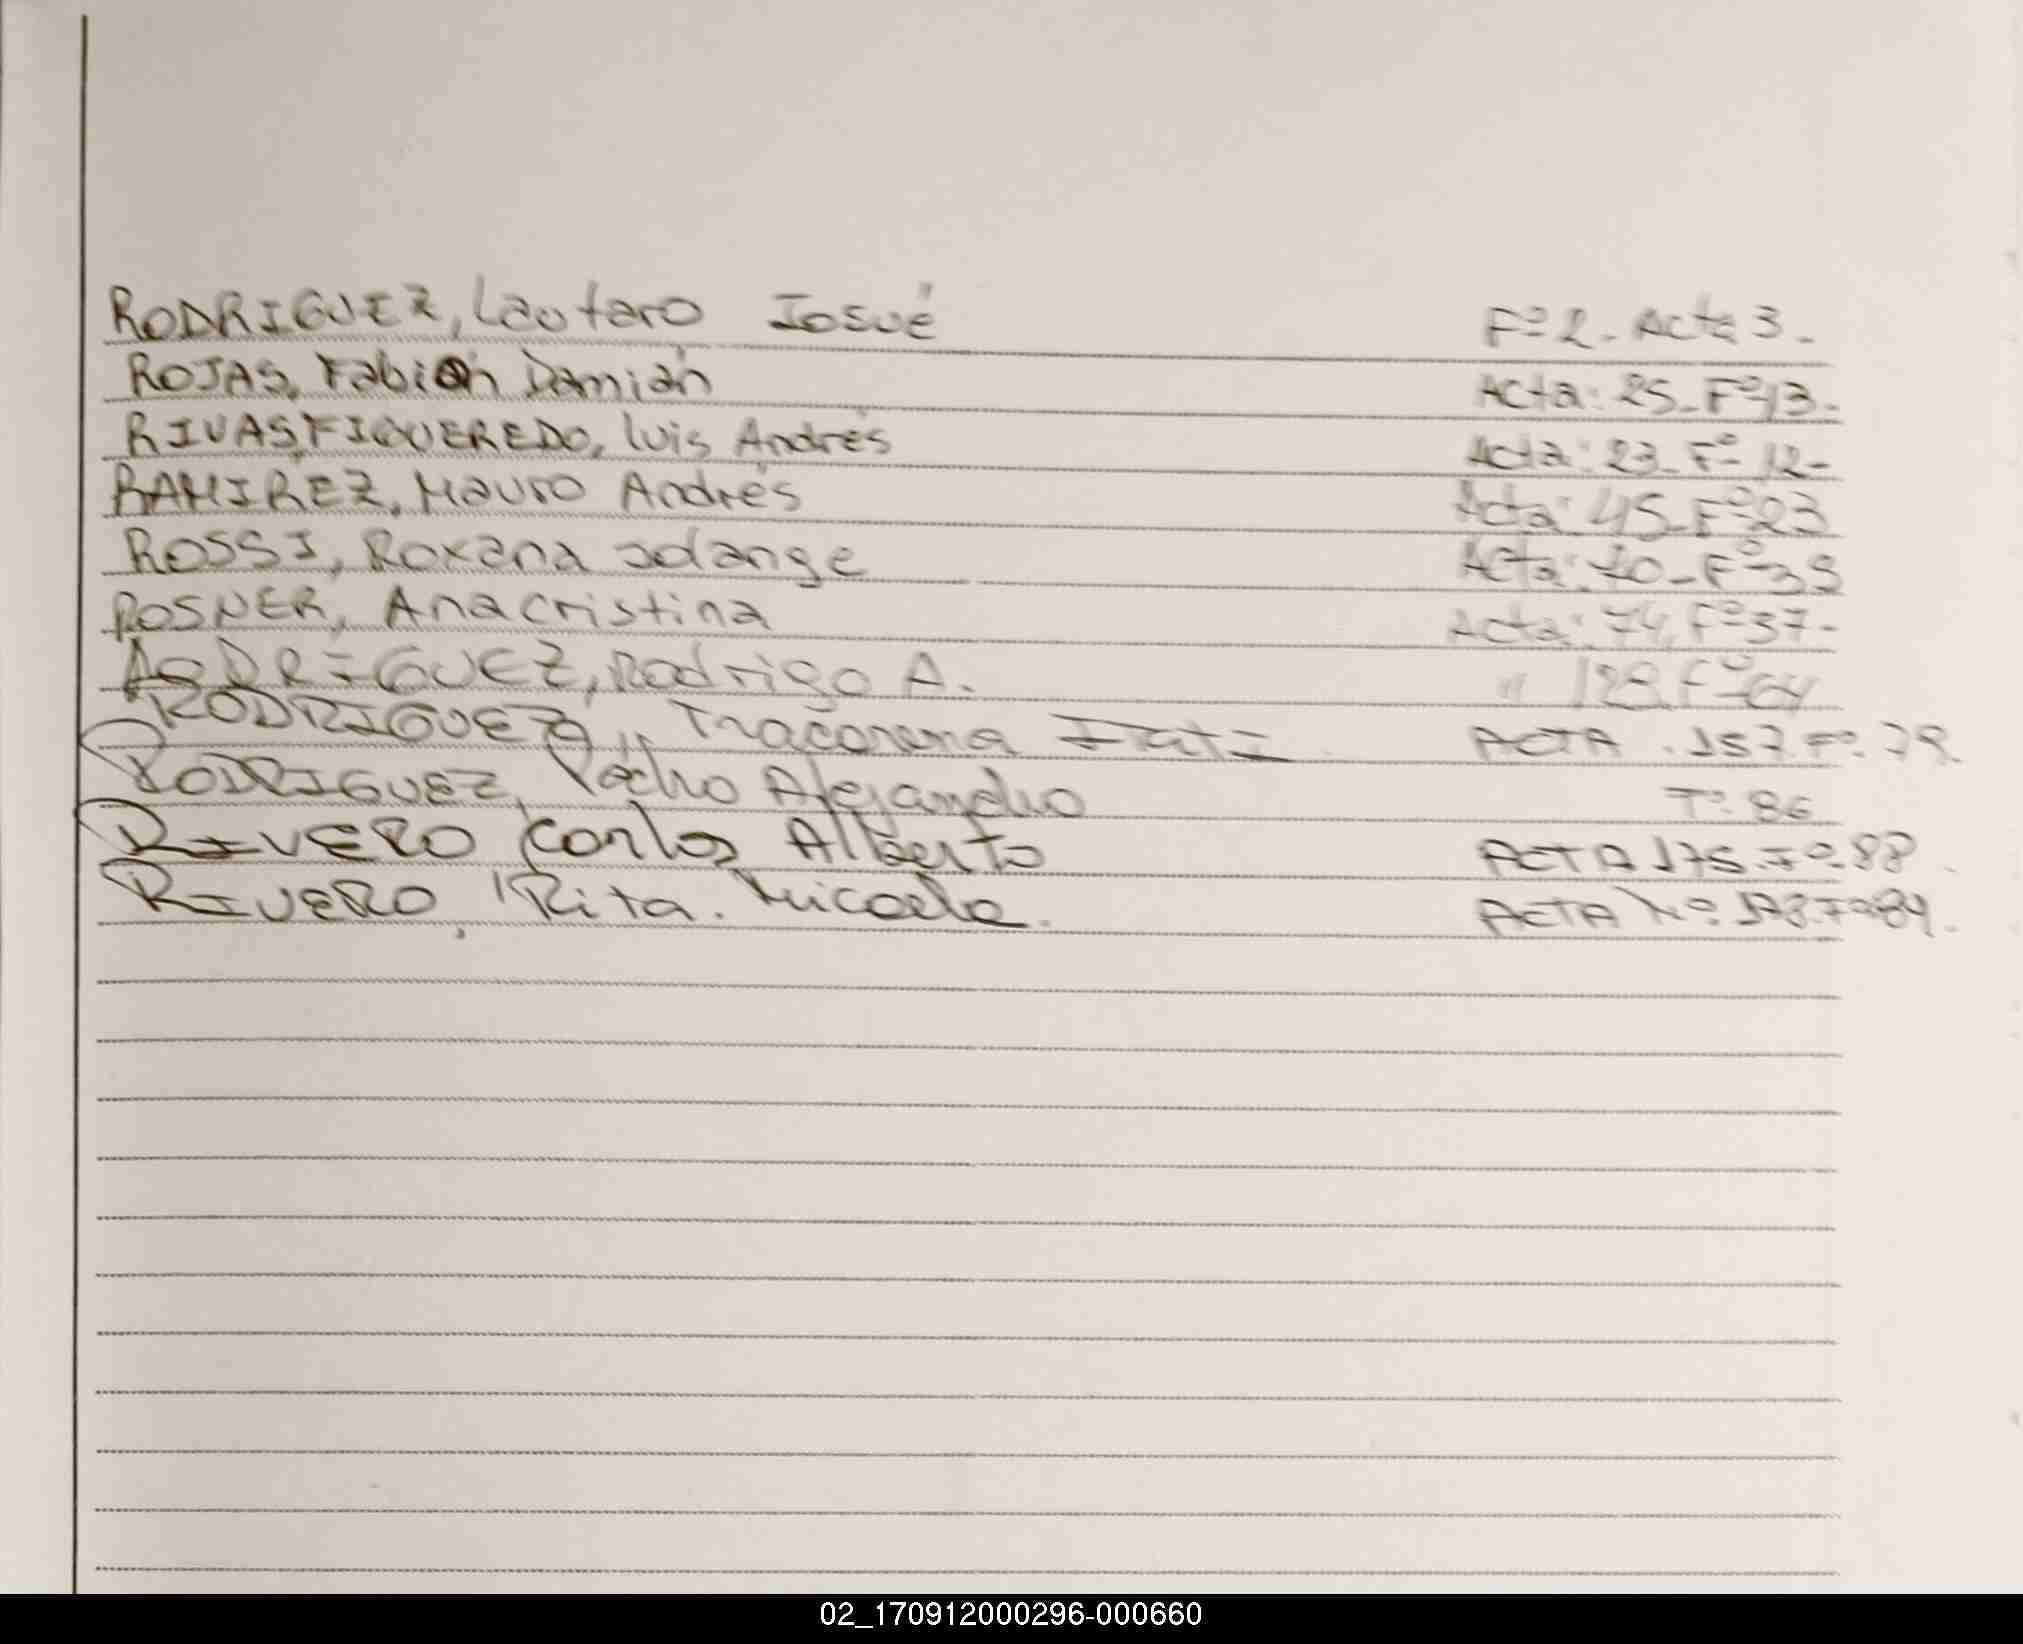 RODRIGUEZ, Lautaro Josué Fº 2 - Acta 3 -
ROJAS, Fabián Damián Acta: 25 - Fº 13 -
RIVAS FIGUEREDO, Luis Andrés Acta: 23 - Fº 12 -
RAMIREZ, Mauro Andrés Acta: 45 - Fº 23
ROSSI, Roxana Solange Acta: 70 - Fº 35
ROSNER, Anacristina Acta: 74, Fº 37 -
RODRIGUEZ, Rodrigo A. " 129 Fº 64
RODRIGUEZ, Macarena ITATI ACTA . 157. Fº. 79.
RODRIGUEZ, Pedro Alejandro Tº. 86
RIVERO Carlos Alberto ACTA 175. Fº. 88.
RIVERO, Rita. Micaela. ACTA Nº. 178. Fº 89.
02_170912000296-000660